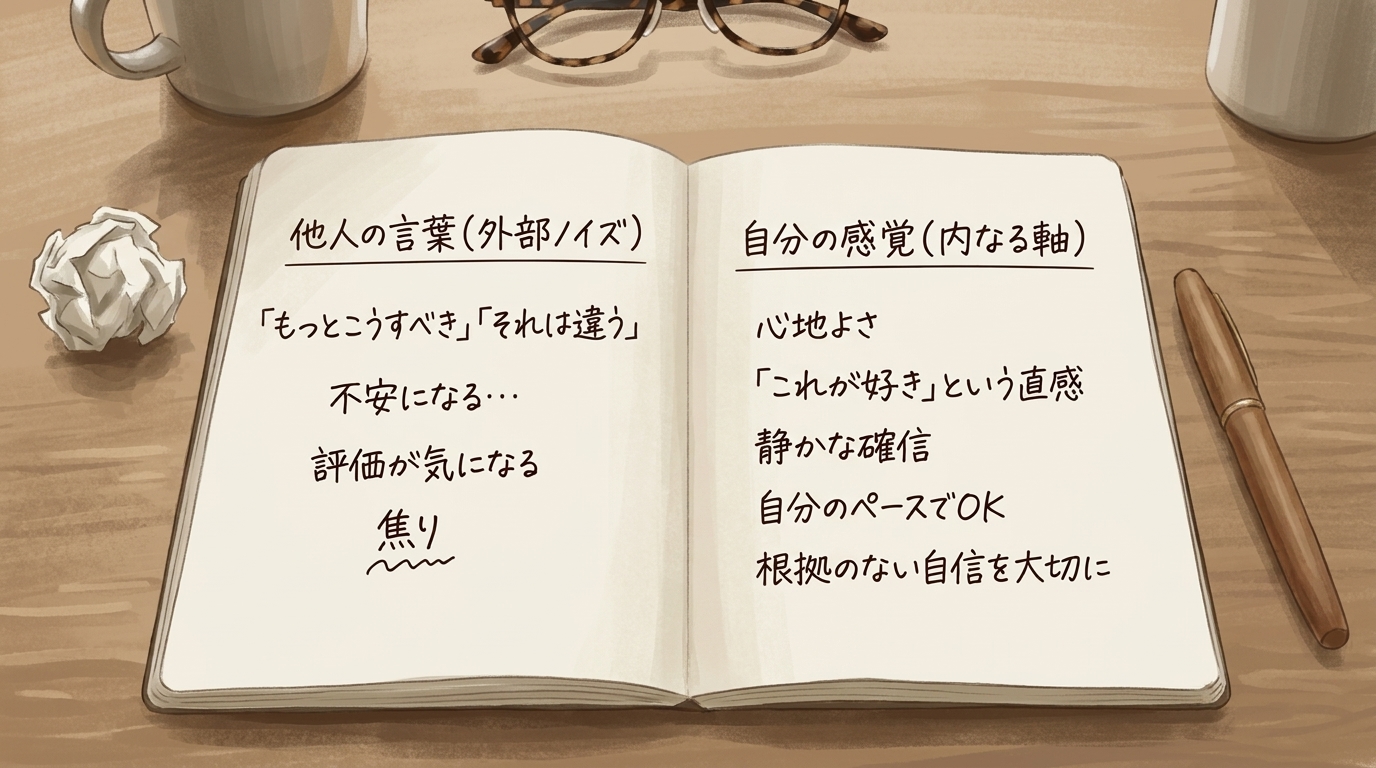 他人の言葉(外部ノイズ)
「もっとこうすべき」「それは違う」
不安になる…
評価が気になる
焦り
自分の感覚(内なる軸)
心地よさ
「これが好き」という直感
静かな確信
自分のペースでOK
根拠のない自信を大切に